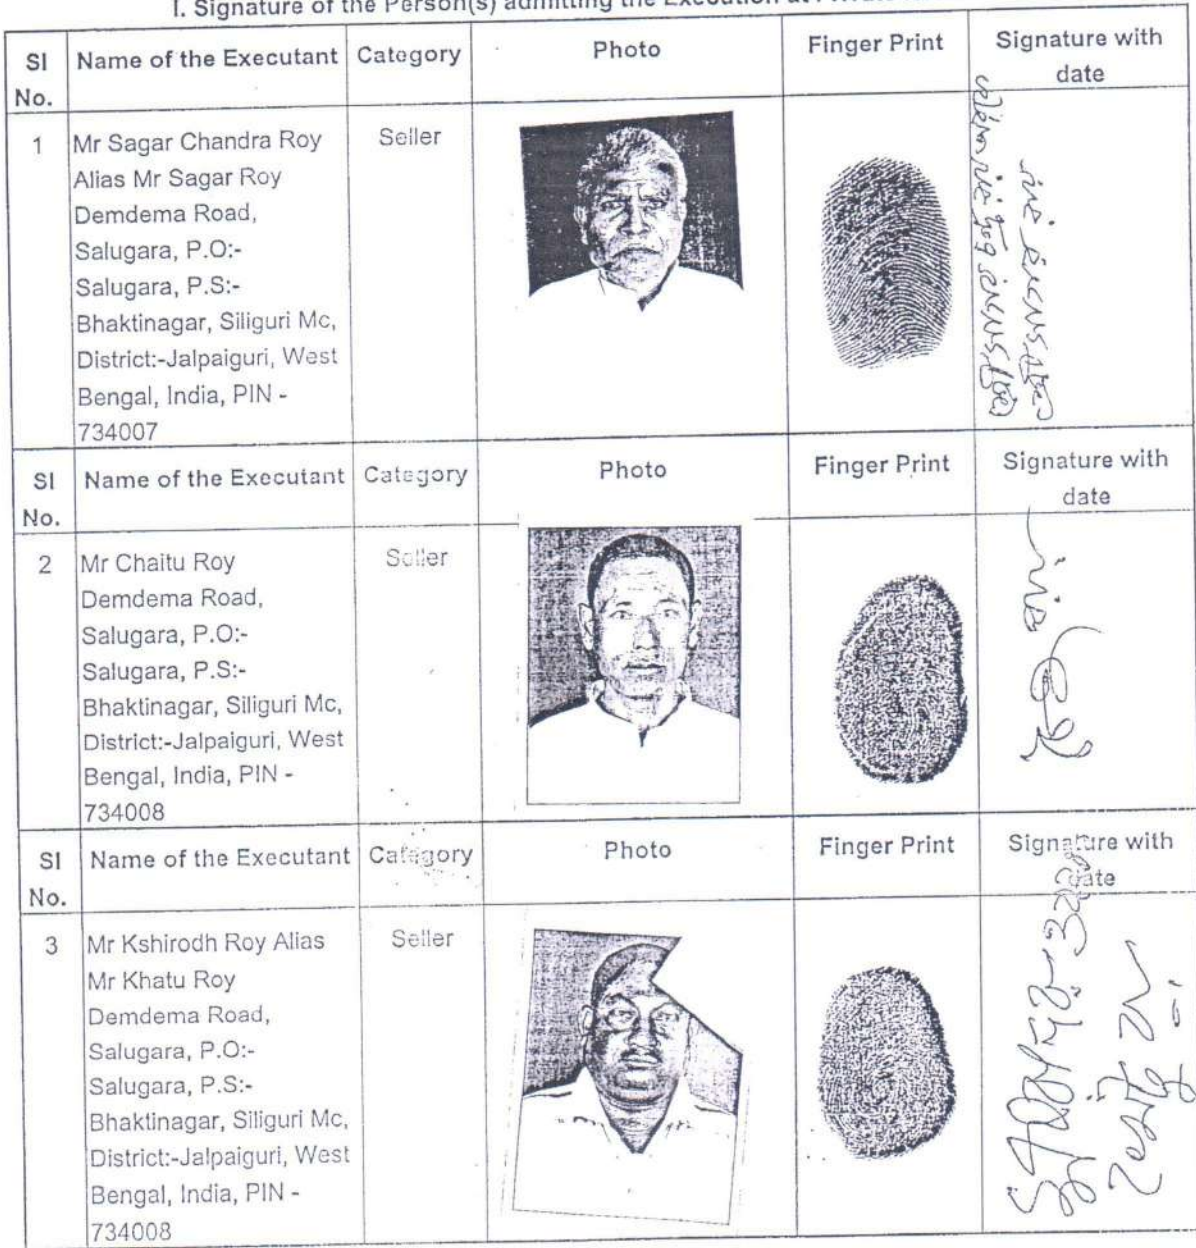 I. Signature of the Person(s) admitting the Execution at Private
Sl No. Name of the Executant Category Photo Finger Print Signature with date
1 Mr Sagar Chandra Roy Seller
Alias Mr Sagar Roy
Demdema Road,
Salugara, P.O:-
Salugara, P.S:-
Bhaktinagar, Siliguri Mc,
District:-Jalpaiguri, West
Bengal, India, PIN -
734007
Sl No. Name of the Executant Category Photo Finger Print Signature with date
2 Mr Chaitu Roy Seller
Demdema Road,
Salugara, P.O:-
Salugara, P.S:-
Bhaktinagar, Siliguri Mc,
District:-Jalpaiguri, West
Bengal, India, PIN -
734008
Sl No. Name of the Executant Category Photo Finger Print Signature with date
3 Mr Kshirodh Roy Alias Seller
Mr Khatu Roy
Demdema Road,
Salugara, P.O:-
Salugara, P.S:-
Bhaktinagar, Siliguri Mc,
District:-Jalpaiguri, West
Bengal, India, PIN -
734008